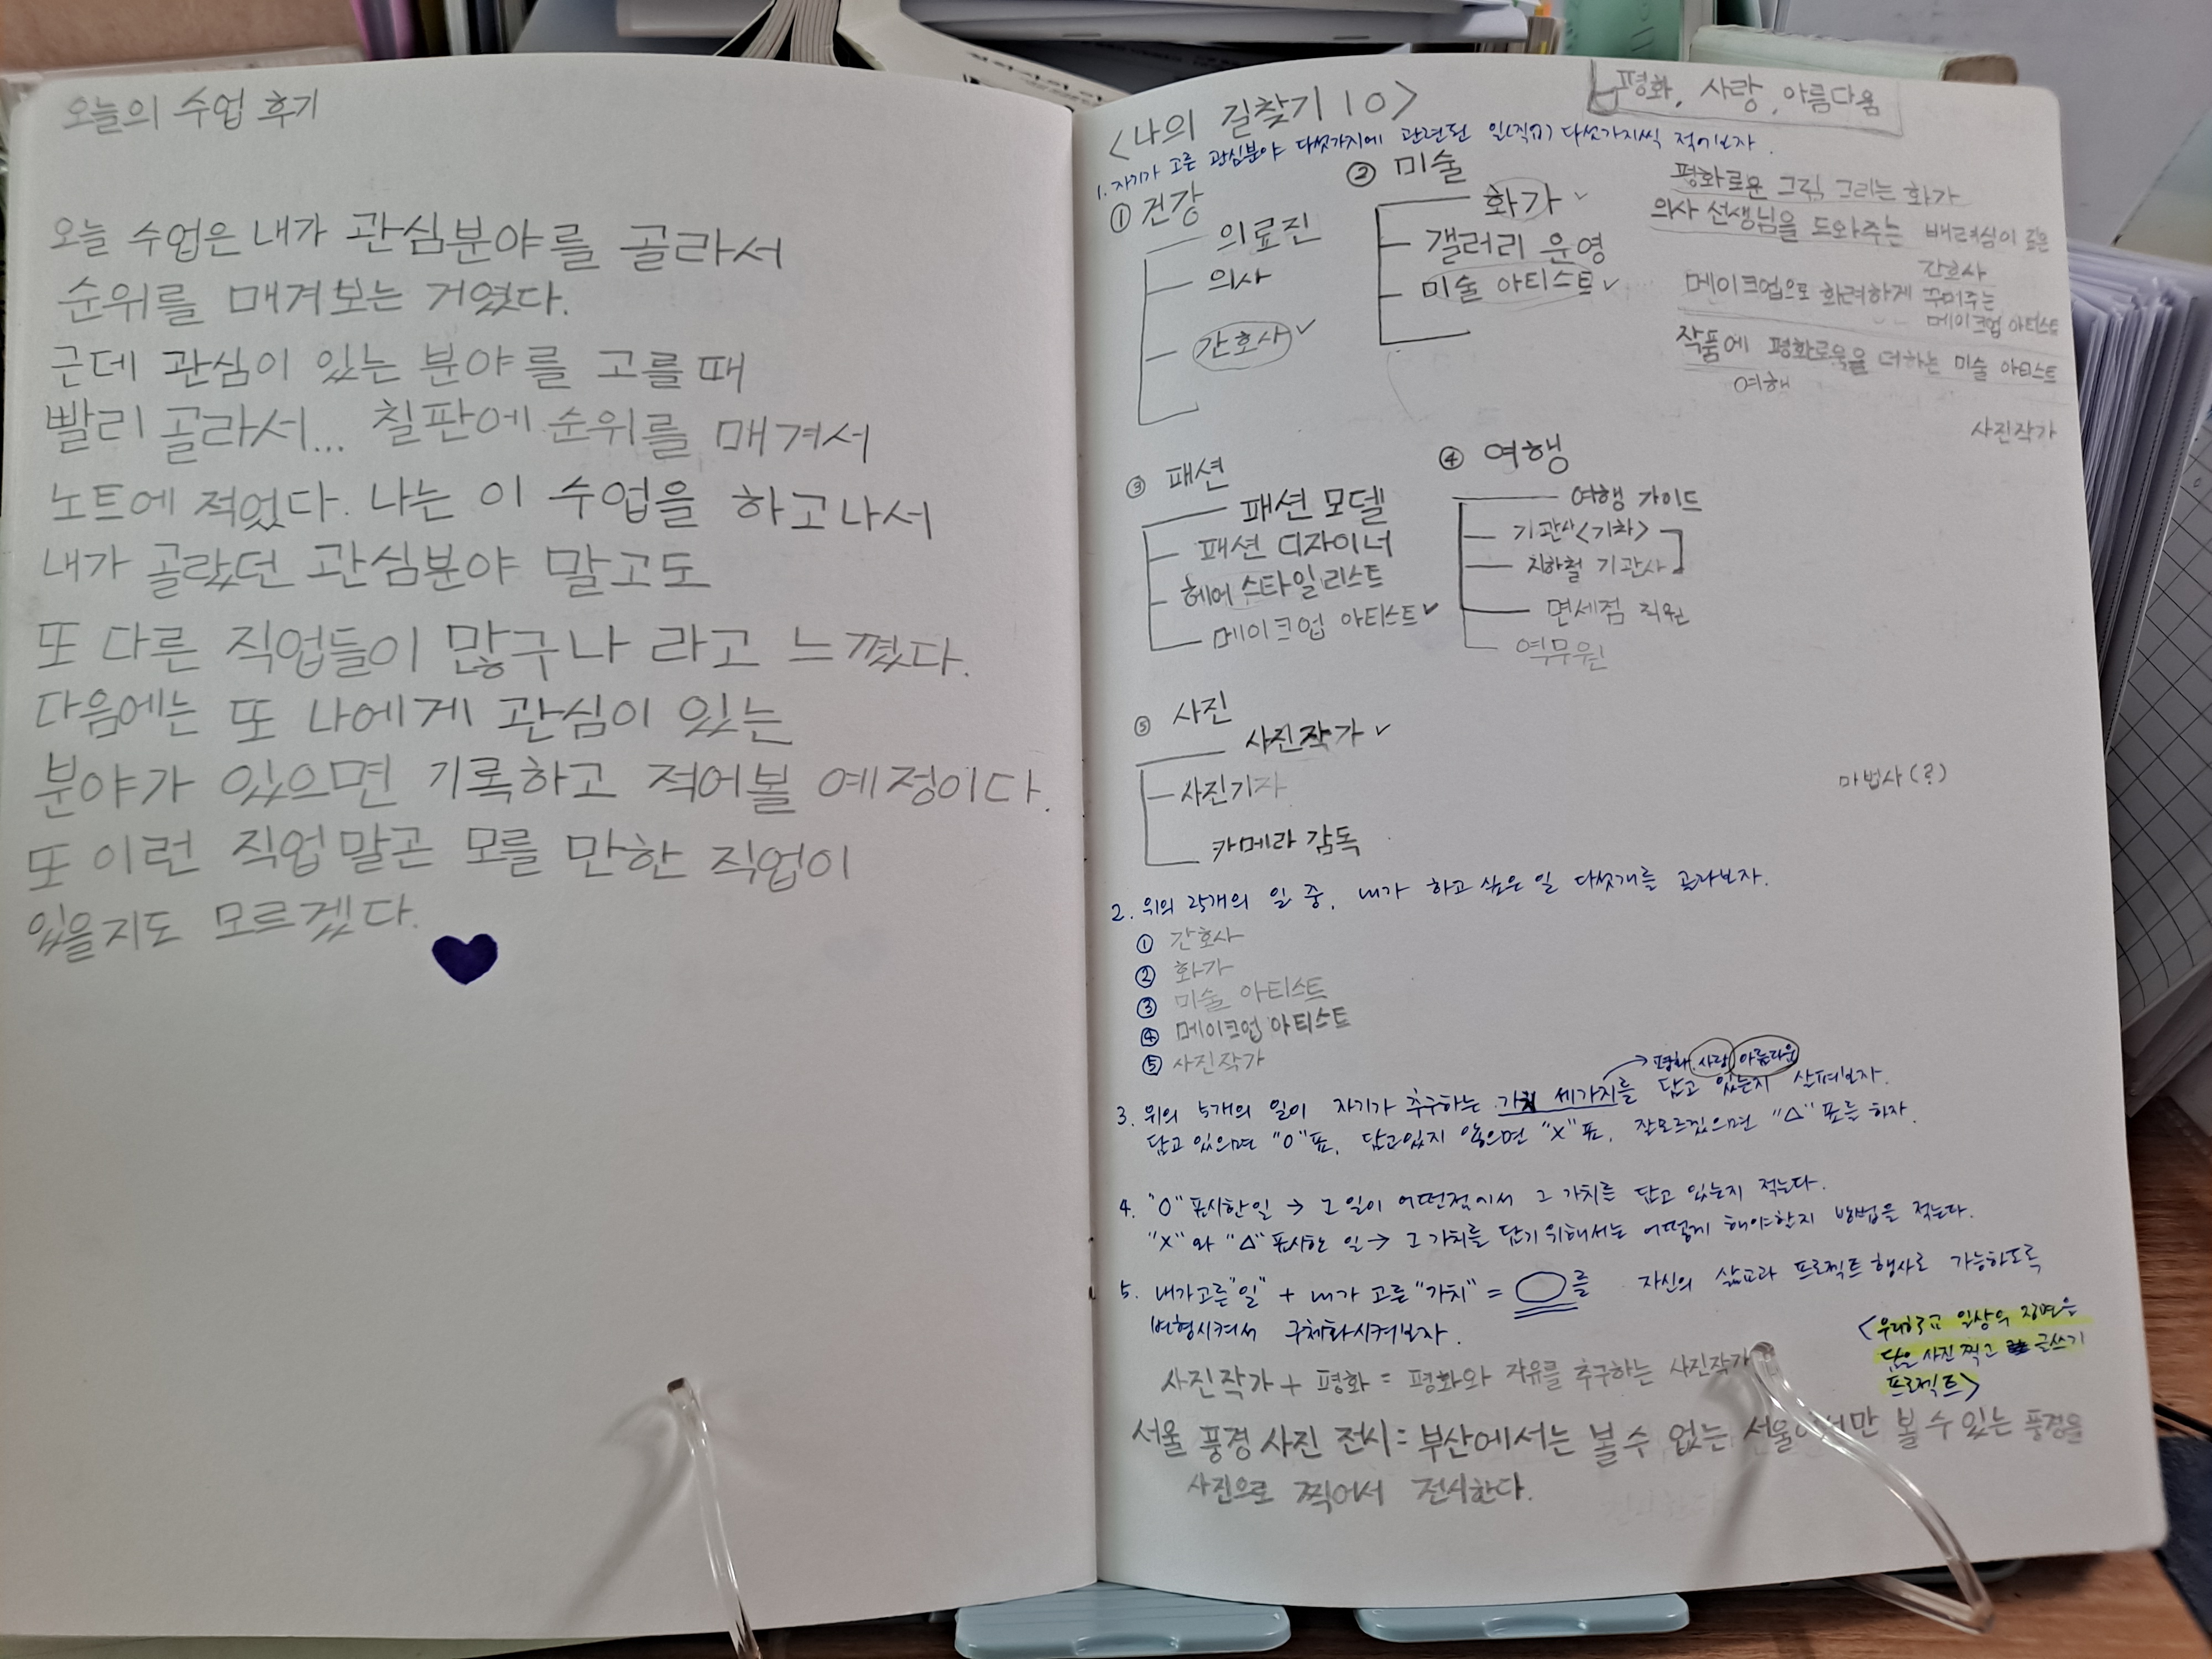 오늘의 수업 후기
오늘 수업은 내가 관심분야를 골라서
순위를 매겨보는 거였다.
근데 관심이 있는 분야를 고를 때
빨리 골라서... 칠판에 순위를 매겨서
노트에 적었다. 나는 이 수업을 하고나서
내가 골랐던 관심분야 말고도
또 다른 직업들이 많구나 라고 느꼈다.
다음에는 또 나에게 관심이 있는
분야가 있으면 기록하고 적어볼 예정이다.
또 이런 직업말곤 모를 만한 직업이
있을지도 모르겠다.
<나의 길찾기 10>
평화, 사랑, 아름다움
1. 자기가 고른 관심분야 다섯가지에 관련된 일(직업) 다섯가지씩 적어보자.
① 건강
의료진
의사
간호사 ✓
② 미술
화가 ✓
갤러리 운영
미술 아티스트 ✓
평화로운 그림 그리는 화가
의사 선생님을 도와주는 배려심이 깊은
간호사
메이크업으로 화려하게 꾸며주는
메이크업 아티스트
작품에 평화로움을 더하는 미술 아티스트
여행
사진작가
③ 패션
패션 모델
패션 디자이너
헤어 스타일리스트
메이크업 아티스트 ✓
④ 여행
여행 가이드
기관사<기차>
지하철 기관사
면세점 직원
역무원
⑤ 사진
사진작가 ✓
사진기자
카메라 감독
마법사(?)
2. 위의 25개의 일 중, 내가 하고 싶은 일 다섯개를 골라보자.
① 간호사
② 화가
③ 미술 아티스트
④ 메이크업 아티스트
⑤ 사진작가
→ 평화, 사랑, 아름다움
3. 위의 5개의 일이 자기가 추구하는 가치 세가지를 담고 있는지 살펴보자.
담고 있으면 "O"표, 담고있지 않으면 "X"표, 잘모르겠으면 "△"표를 하자.
4. "O"표시한일 → 그 일이 어떤점에서 그 가치를 담고 있는지 적는다.
"X"와 "△"표시한 일 → 그 가치를 담기위해서는 어떻게 해야한지 방법을 적는다.
5. 내가고른"일" + 내가 고른"가치" = ◯를 자신의 삶교과 프로젝트 행사로 가능하도록
변형시켜서 구체화시켜보자.
<우리학교 일상의 장면을
담은 사진 찍고 글쓰기
프로젝트>
사진작가 + 평화 = 평화와 자유를 추구하는 사진작가
서울 풍경 사진 전시 = 부산에서는 볼 수 없는 서울에서만 볼 수 있는 풍경을
사진으로 찍어서 전시한다.